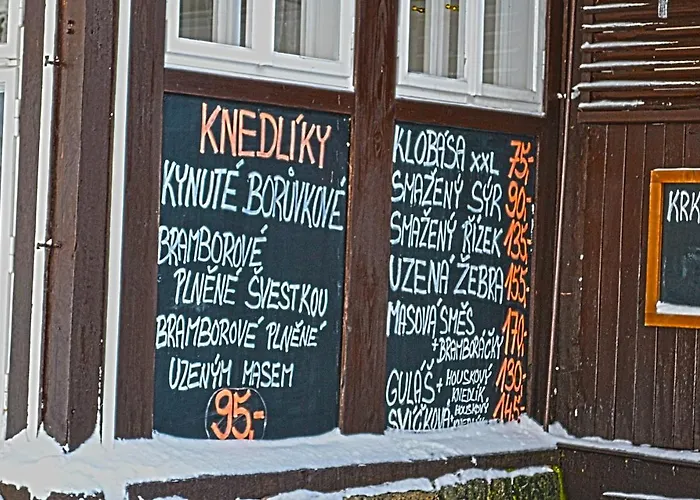 KNEDLÍKY
KYNUTÉ BORŮVKOVÉ
BRAMBOROVÉ
PLNĚNÉ ŠVESTKOU
BRAMBOROVÉ PLNĚNÉ
UZENÝM MASEM
95,-
KLOBÁSA XXL 75,-
SMAŽENÝ SÝR 90,-
SMAŽENÝ ŘÍZEK 135,-
UZENÁ ŽEBRA 155,-
MASOVÁ SMĚS
+ BRAMBORÁČKY 170,-
GULÁŠ + HOUSKOVÝ
KNEDLÍK 130,-
SVÍČKOVÁ + HOUSKOVÝ
KNEDLÍK 145,-
KRK